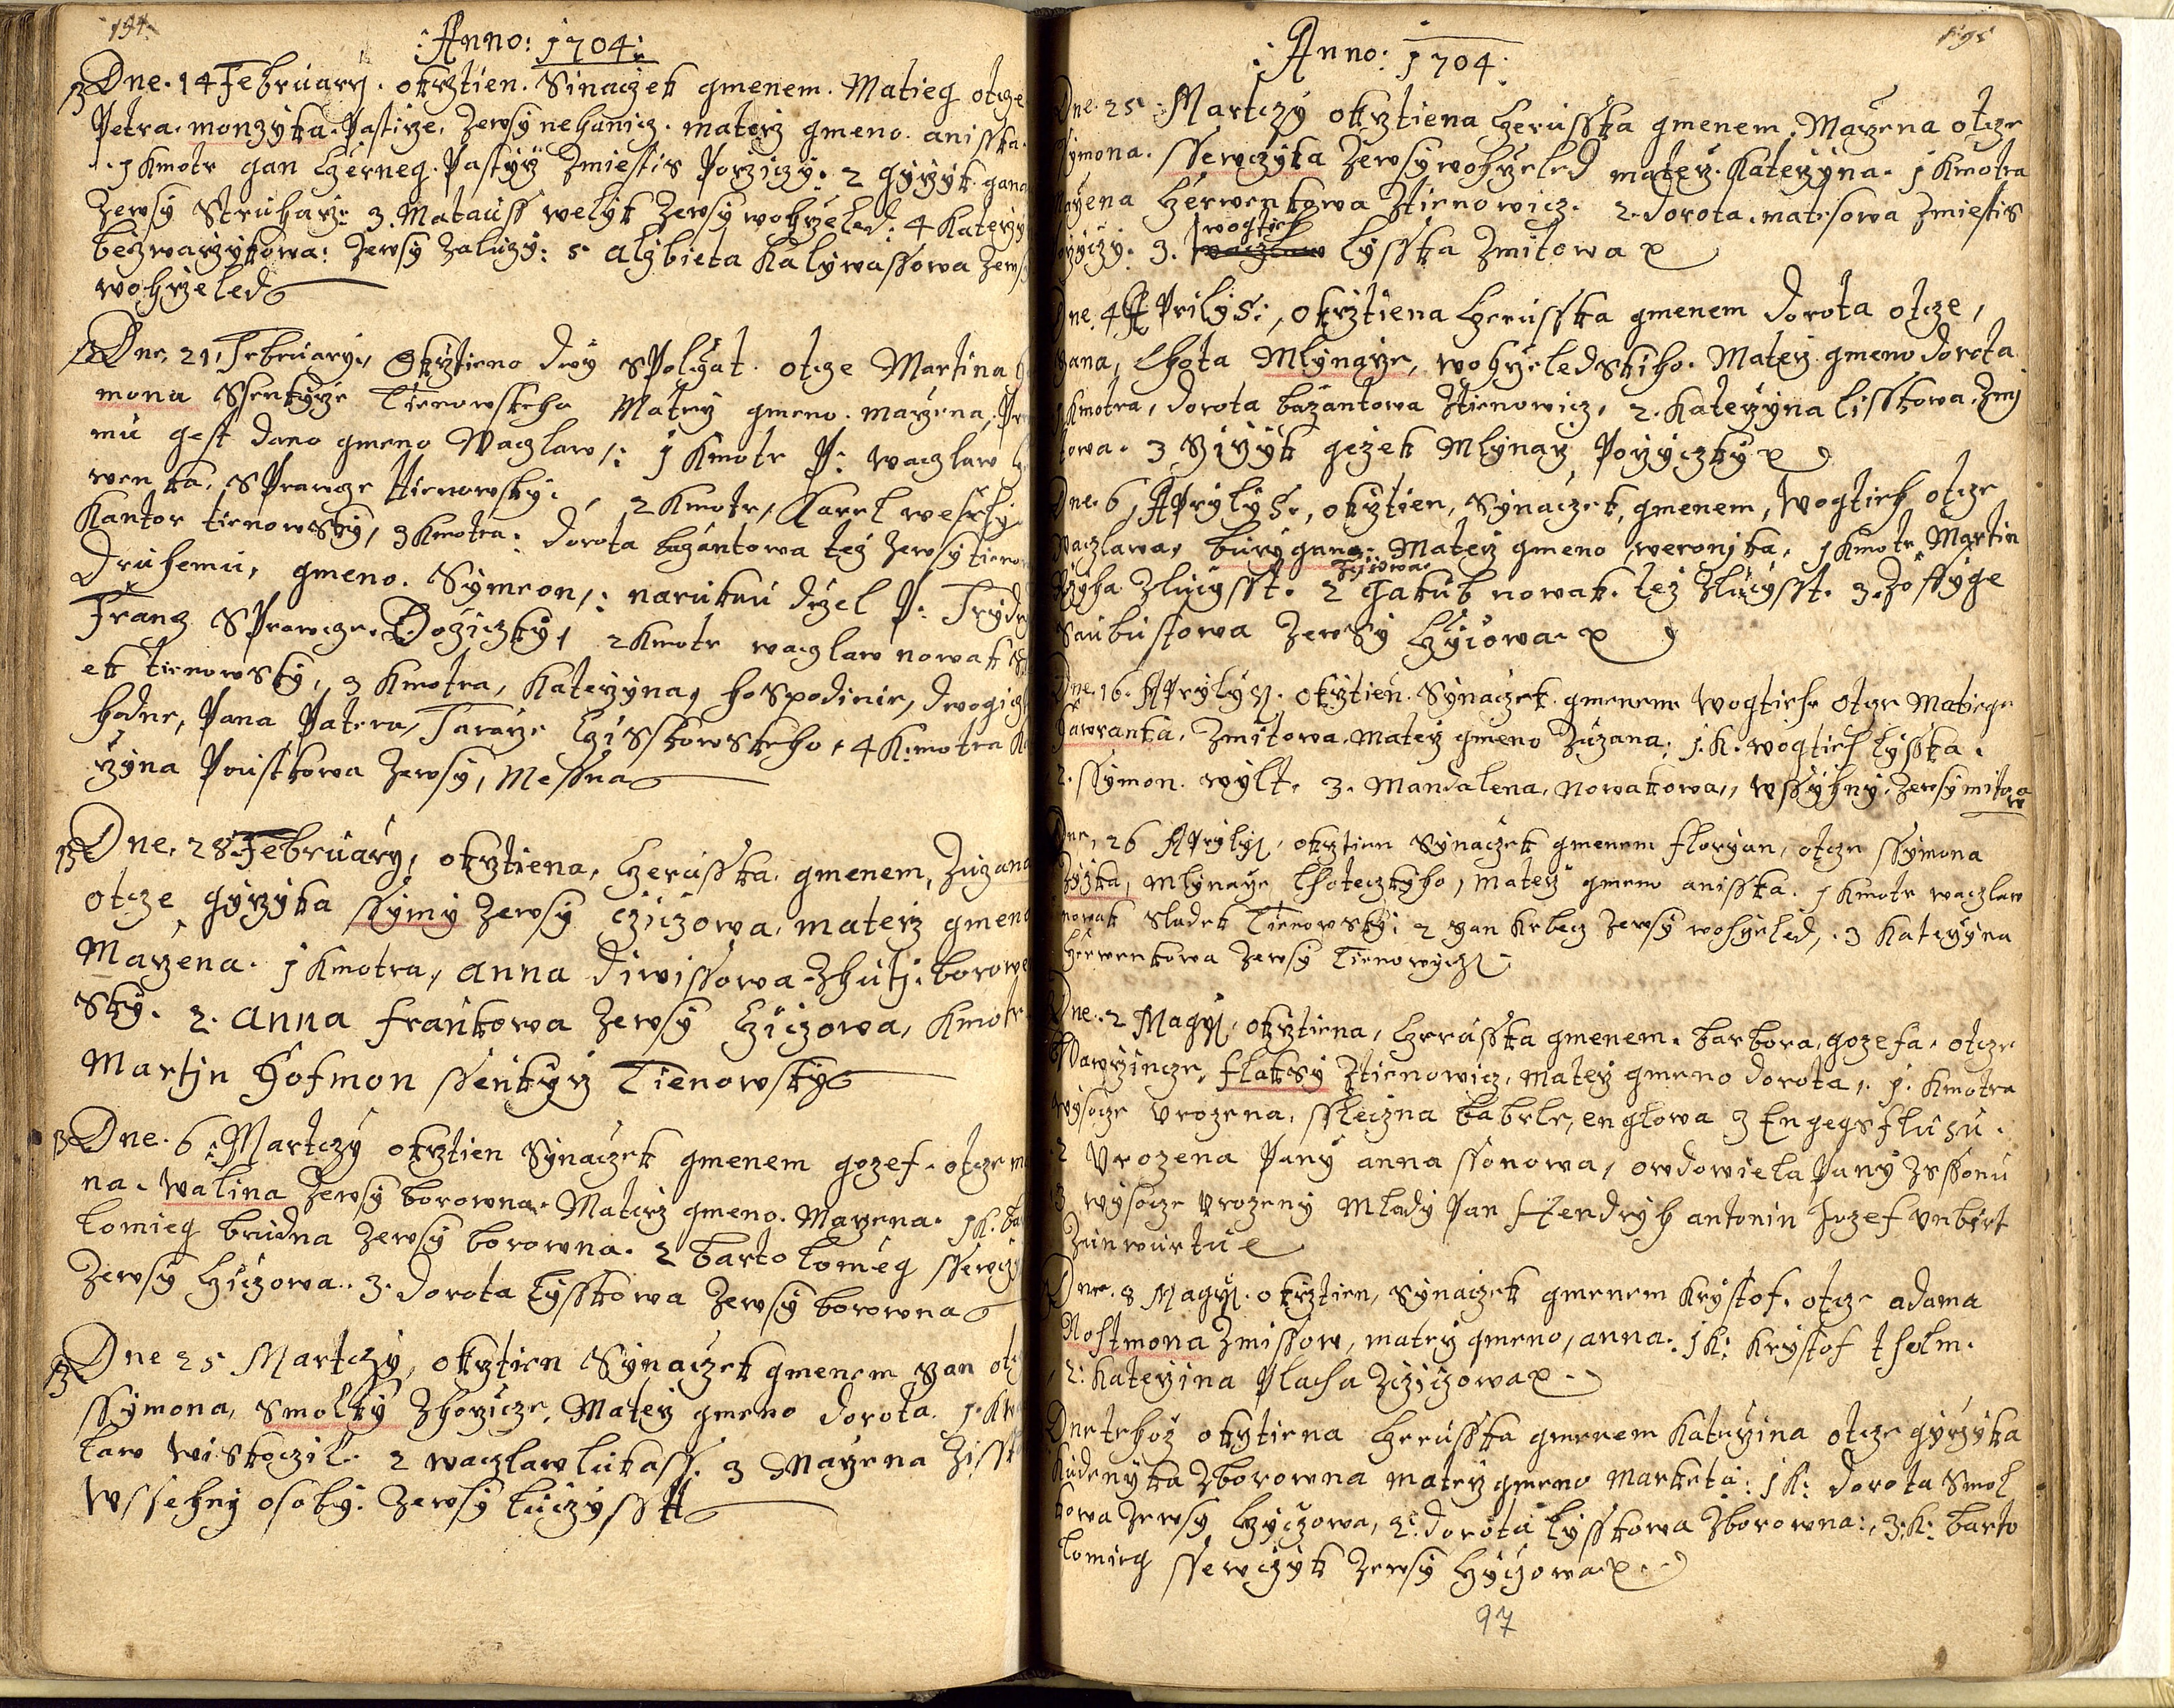 194.
:Anno: 1704:
Dne. 14 February. okrztien. Sinaczek gmenem. Matieg otcze
Petra. monzyka. Pastirze. Zewsy nehanicz. materz gmeno. anisska.
1 Kmotr gan Czerneg. Pastyrz Zmiestis Porziczy: 2 gyrzyk. gana
Zewsy Struharz: 3. Matauss welyk Zewsy wohrzeled: 4 Katerzy
bezwarzykowa: Zewsy Zaluzy: 5 alzbieta Kalywassowa Zewsy
wohrzeled
Dne, 21, February, Okrztieno dwy spolczat. otcze Martina
mona Ssenkyrze Tienowskeho Materz gmeno. marzena, Pr
mu gest dano gmeno Waczlaw,: 1 Kmotr P: waczlaw
wenka. Sprawcze Ttienowsky: , 2 Kmotr, Karel wesely
Kantor tienowsky, 3 Kmotra: dorota bazantowa tez Zewsy tieno
Druhemu, gmeno. Symeon,: narukau drzel P: Frydr
Franz Sprawcze. Pořziczky, 2 Kmotr waczlaw nowak S
ek tienowsky, 3 Kmotra, Katerzyna, hospodinie, dwogich
hodne, Pana Patera, Faraze Czisskowskeho, 4 Kmotra K
rzyna Paustkowa Zewsy, Messna
Dne, 28 February, okrztiena, Czerusska. gmenem, Zuzana
otcze gyrzyka ssymy Zewsy Cziczowa, materz gmeno
Marzena. 1 Kmotra, anna diwissowa Zhuti borowe
sky. 2. anna frankowa Zewsy Cziczowa, Kmotr
Martin Hofmon ssenkyrz Tienowsky
Dne. 6 Martczy okrztien Synaczek gmenem gozef. otcze m
na. walina Zewsy borowna. Materz gmeno. Marzena. 1 K. bar
lomieg brudna Zewsy borowna. 2 bartolomieg ssewcz
Zewsy Cziczowa. 3. dorota Lysskowa Zewsy borowna
Dne 25 Martczy, okrztien Synaczek gmenem gan otcz
ssymona, Smolky Zhorzicze, Materz gmeno dorota. 1. Km
law wiskoczil. 2 waczlaw lukass. 3 Marzena Zissk
Wssehny osoby. Zewsy luczysstt
195
:Anno: 1704:
Dne. 25. Martczy okrztiena Czerusska gmenem. Marzena otcze
Symona. ssewczyka Zewsy wohrzeled materz. Katerzyna. 1 Kmotra
Marzena Czerwenkowa Ztienowicz. 2. dorota. matesowa Zmiestis
wogtieh
orzyczy. 3. waczlaw Lysska Zmitowa
Dne. 4 Aprilys:, okrztiena Czerusska gmenem dorota otcze,
gana, Chota Mlynarze, wohrzeledskiho. Materz gmeno dorota
1 Kmotra, dorota bazantowa Ztienowicz, 2. Katerzyna Lisskowa. Zmi
towa. 3 Girzyk gezek Mlynarz Porzyczky
Dne. 6, Aprylys:, okrztien, Synaczek, gmenem, Wogtieh otcze
Waczlawa, burygana. Materz gmeno weronika. 1 Kmotr, Martin
Rzyha Zluczysst. 2 Gakub nowak. tez Zluczysst. 3. Zoffyge
Saubustowa Zewsy Czyczowa
Dne. 16. Aprylys. okrztien. Synaczek. gmenem Wogtieh otcze Matiege
Hawranka. Zmitowa. Materz gmeno Zuzana: 1. K. wogtieh Lysska.
2. ssymon. wylt. 3. Mandalena. Nowakowa,, wssyhny. Zewsy mitowa
Dne, 26 Aprylys, okrztien Synaczek gmenem floryan, otcze ssymona
mlynarze Choteczkyho, materz gmeno anisska. 1 Kmotr waczlaw
nowak Sladek Tienowsky: 2 gan Krbecz Zewsy wohrzeled, 3 Katerzyna
Czerwenkowa Zewsy Tienowycz
Dne. 2 Magy, okrztiena, Czerusska gmenem. barbora, gozefa. otcze
Wawrzincze, flaksy Ztienowicz, Materz gmeno dorota,. 1. Kmotra
wysocze urozena, Sslechzna babele, englowa z Engegsfluzu.
2 Urozena Pany anna ssonowa, owdowiela Pany Zssonu
3 wysocze Urozeny Mlady Pan Hendrych antonin Jozef Unbert
Zunwurtu
Dne. 8 Magy. okrztien, Synaczek gmenem Krystof. otcze adama
Rostmona Zmissow, materz gmeno, anna. 1 K: Krystof tholm.
2: Katerzina Placha Zcziczowa
Dne tehoz okrztiena Czerusska gmenem Katerzina otcze gyrzyka
Kudenyka Zborowna materz gmeno Marketa: 1 K: dorota Smol
kowa Zewsy Czyczowa, 2: dorota Lysskowa Zborowna:, 3: K: barto
lomieg ssewczyk Zewsy Czyczowa
97